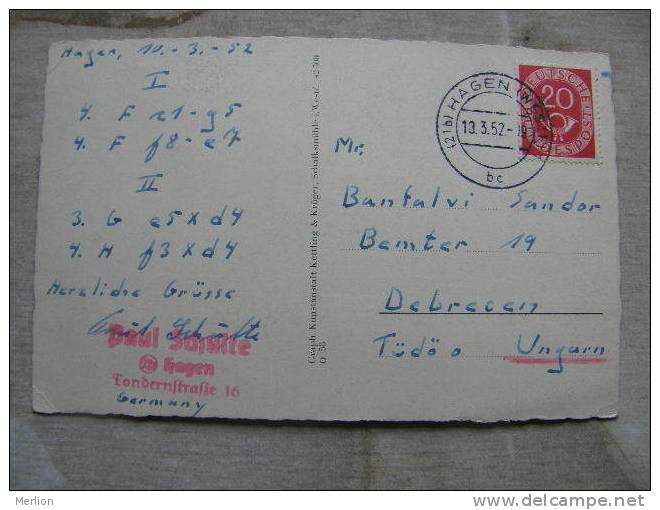 Hagen, 10.-3.-52
I
4. F e1-g5
4. F f8-e7
II
3. G e5 x d4
4. H f3 x d4
Herzliche Grüsse
Paul Schulte
Paul Schulte
Hagen
Tondernstraße 16
Germany
Graph. Kunstanstalt Kettling & Krüger, Schalksmühle i. Westf.
DEUTSCHE POST
20
BUNDESPOST
(21b) HAGEN (WESTF)
10.3.52
bc
Mr.
Bantalvi Sandor
Bemter 19
Debrecen
Tüdö o Ungarn
Merlion
www.delcampe.net